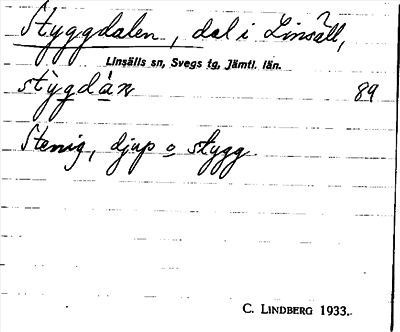 Styggdalen, dal i Linsäll,
Linsälls sn, Svegs tg, Jämtl. län.
stỳgdán 89
Stenig, djup o stygg.
C. LINDBERG 1933.